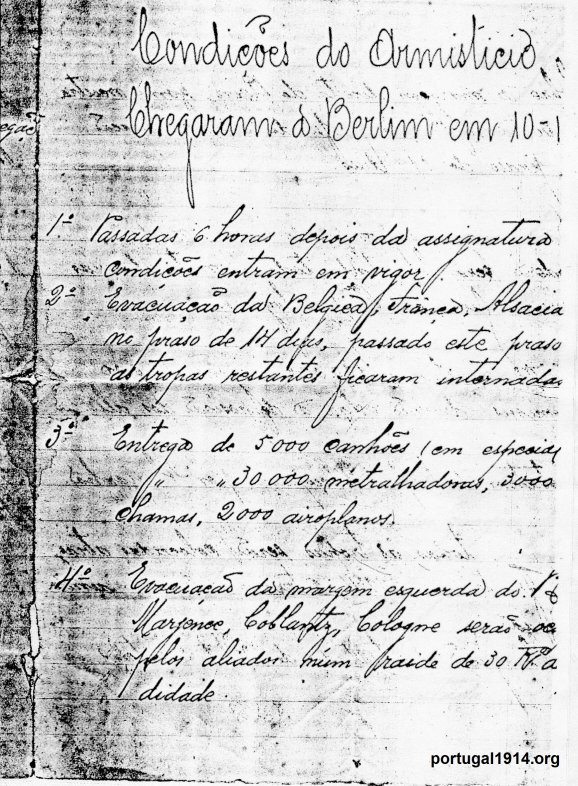 Condições do Armisticio
Chegaram a Berlim em 10-1
egação
1º Passadas 6 horas depois da assignatura
condições entram em vigor.
2º Evacuação da Belgica, França, Alsacia
no praso de 14 dias, passado este praso
as tropas restantes ficaram internadas
3º Entrega de 5000 canhões (em especial
" " 30000 metralhadoras, 3000
chamas, 2000 airoplanos.
4º Evacuação da margem esquerda do R
Marjence, Coblantz, Cologne serão oc
pelos aliados num raide de 30 K. a
didade.
portugal1914.org